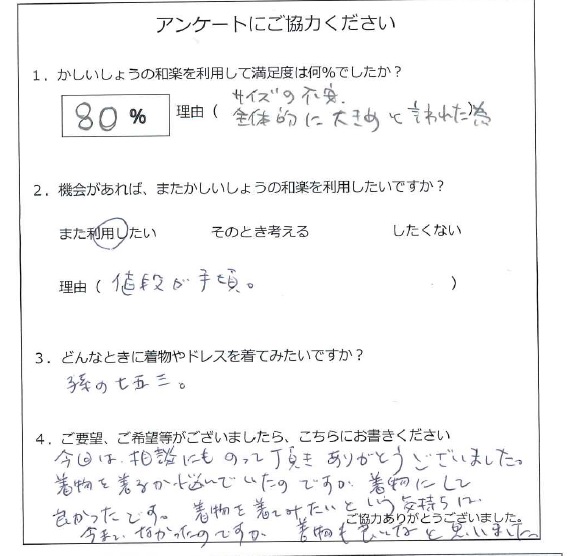 アンケートにご協力ください
1．かしいしょうの和楽を利用して満足度は何%でしたか？
80 % 理由（ サイズの不安、
全体的に大きめと言われた為 ）
2．機会があれば、またかしいしょうの和楽を利用したいですか？
また利用したい そのとき考える したくない
理由（ 値段が手頃。 ）
3．どんなときに着物やドレスを着てみたいですか？
孫の七五三。
4．ご要望、ご希望等がございましたら、こちらにお書きください
今回は、相談にものって頂きありがとうございました。
着物を着るか悩んでいたのですが、着物にして
良かったです。着物を着てみたいという気持ちに、
ご協力ありがとうございました。
今まで、なかったのですが、着物も良いなと思いました。